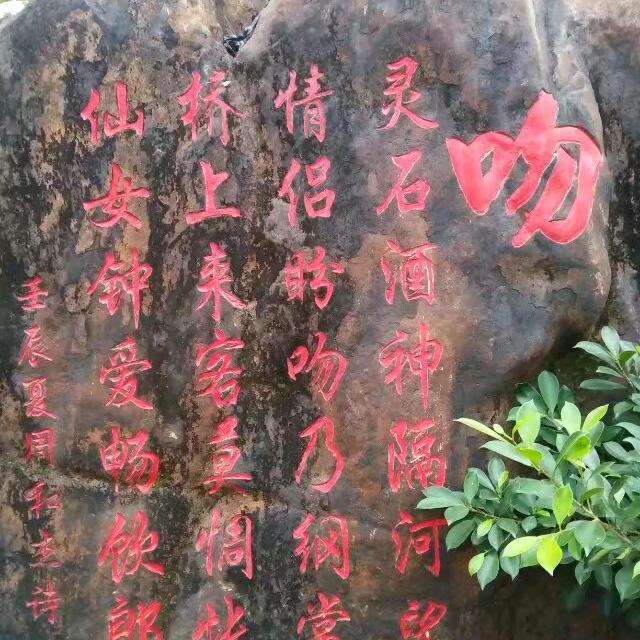 吻
灵石酒神隔河望
情侣盼吻乃纲常
桥上来客莫惆怅
仙女钟爱畅饮郎
壬辰夏周和志诗